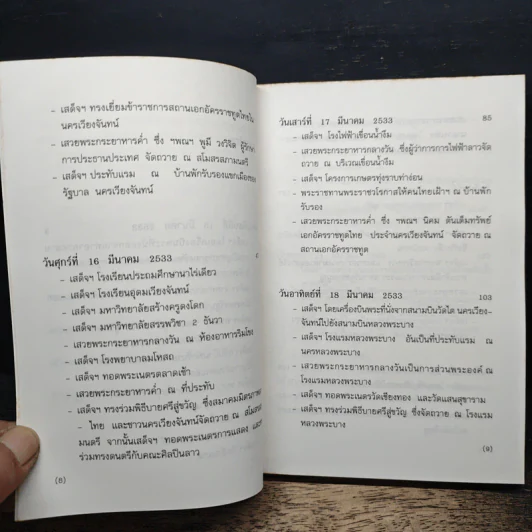 - เสด็จฯ ทรงเยี่ยมข้าราชการสถานเอกอัครราชทูตไทยใน
นครเวียงจันทน์
- เสวยพระกระยาหารค่ำ ซึ่ง ฯพณฯ พูมี วงวิจิด ผู้รักษา
การประธานประเทศ จัดถวาย ณ สโมสรสภามนตรี
- เสด็จฯ ประทับแรม ณ บ้านพักรับรองแขกเมืองของ
รัฐบาล นครเวียงจันทน์
วันศุกร์ที่ 16 มีนาคม 2533
- เสด็จฯ โรงเรียนประถมศึกษานาไร่เดียว
- เสด็จฯ โรงเรียนอุดมเวียงจันทน์
- เสด็จฯ มหาวิทยาลัยสร้างครูดงโดก
- เสด็จฯ มหาวิทยาลัยสรรพวิชา 2 ธันวา
- เสวยพระกระยาหารกลางวัน ณ ห้องอาหารริมโขง
- เสด็จฯ โรงพยาบาลมโหสถ
- เสด็จฯ ทอดพระเนตรตลาดเช้า
- เสวยพระกระยาหารค่ำ ณ ที่ประทับ
- เสด็จฯ ทรงร่วมพิธีบายศรีสู่ขวัญ ซึ่งสมาคมมิตรภาพ
- ไทย และชาวนครเวียงจันทน์จัดถวาย ณ สโมสร
มนตรี จากนั้นเสด็จฯ ทอดพระเนตรการแสดง และ
ร่วมทรงดนตรีกับคณะศิลปินลาว
(8)
วันเสาร์ที่ 17 มีนาคม 2533 85
- เสด็จฯ โรงไฟฟ้าเขื่อนน้ำงึม
- เสวยพระกระยาหารกลางวัน ซึ่งผู้ว่าการการไฟฟ้าลาวจัด
ถวาย ณ บริเวณเขื่อนน้ำงึม
- เสด็จฯ โครงการเกษตรทุ่งราบท่างอน
- พระราชทานพระราชวโรกาสให้คนไทยเฝ้าฯ ณ บ้านพัก
รับรอง
- เสวยพระกระยาหารค่ำ ซึ่ง ฯพณฯ นิคม ตันเต็มทรัพย์
เอกอัครราชทูตไทย ประจำนครเวียงจันทน์ จัดถวาย ณ
สถานเอกอัครราชทูต
วันอาทิตย์ที่ 18 มีนาคม 2533 103
- เสด็จฯ โดยเครื่องบินพระที่นั่งจากสนามบินวัดไต นครเวียง-
จันทน์ไปยังสนามบินหลวงพระบาง
- เสด็จฯ โรงแรมหลวงพระบาง อันเป็นที่ประทับแรม ณ
นครหลวงพระบาง
- เสวยพระกระยาหารกลางวันเป็นการส่วนพระองค์ ณ
โรงแรมหลวงพระบาง
- เสด็จฯ ทอดพระเนตรวัดเชียงทอง และวัดแสนสุขาราม
- เสด็จฯ ทรงร่วมพิธีบายศรีสู่ขวัญ ซึ่งจัดถวาย ณ โรงแรม
หลวงพระบาง
(9)